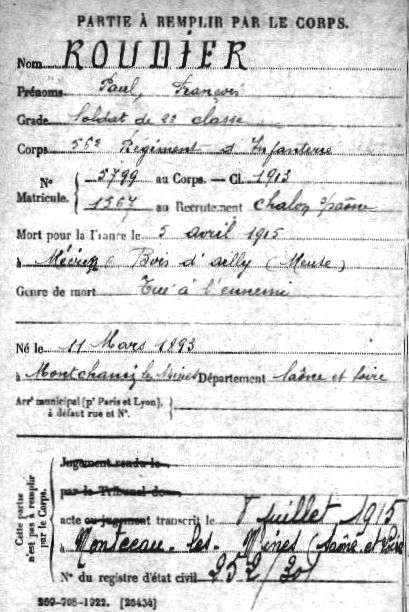 PARTIE À REMPLIR PAR LE CORPS.
Nom ROUDIER
Prénoms Paul, François
Grade Soldat de 2e classe
Corps 55e Régiment d'Infanterie
N° Matricule. { 5799 au Corps. — Cl. 1913
1567 au Recrutement Chalon s/Saône
Mort pour la France le 5 avril 1915
à Bois d'ailly (Meuse)
Genre de mort Tué à l'ennemi
Né le 11 Mars 1893
à Montchanin les Mines Département Saône et Loire
Arrt municipal (pr Paris et Lyon), à défaut rue et N°. {
Cette partie n'est pas à remplir par le Corps. {
Jugement rendu le
par le Tribunal de
acte ou jugement transcrit le 8 juillet 1915
à Montceau-les-Mines (Saône et Loire
N° du registre d'état civil 252/201
269-708-1922. [26434]